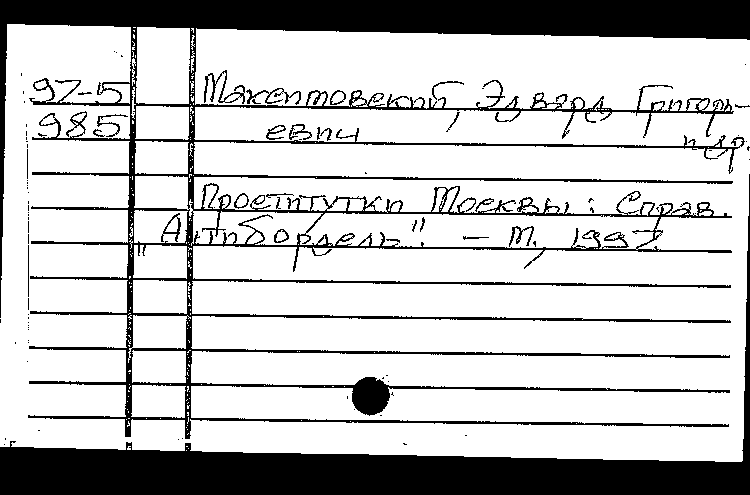 97-5 Максимовский, Эдвард Григорь-
985 евич и др.
Проститутки Москвы: Справ.
„Антибордель". – М., 1997